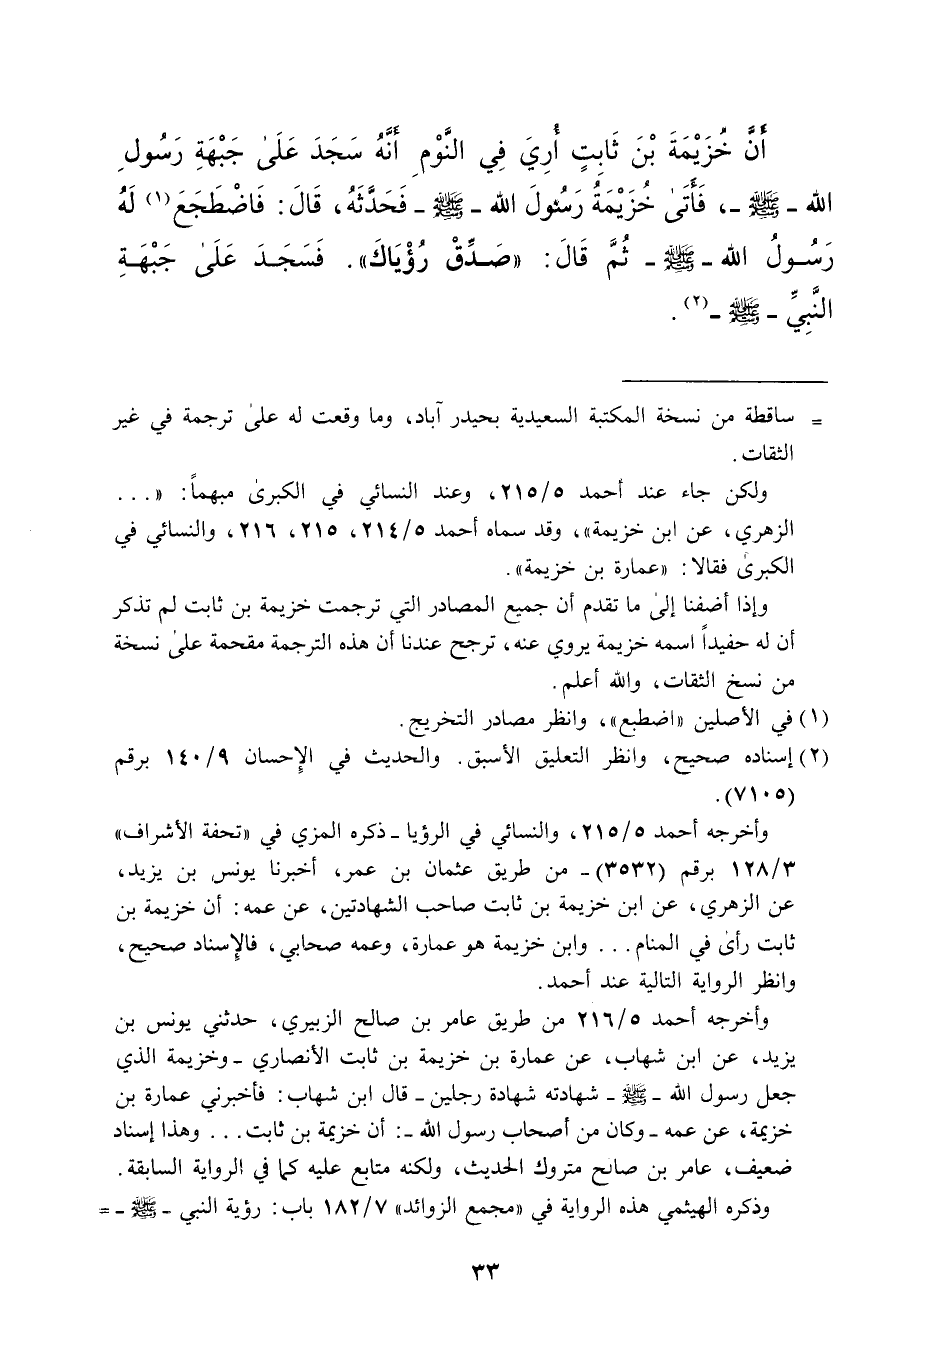 أَنَّ خُزَيْمَةَ بْنَ ثَابِتٍ أُرِيَ فِي النَّوْمِ أَنَّهُ سَجَدَ عَلَىٰ جَبْهَةِ رَسُولِ
الله ـ ﷺ ـ، فَأَتَىٰ خُزَيْمَةُ رَسُولَ الله ـ ﷺ ـ فَحَدَّثَهُ، قَالَ: فَاضْطَجَعَ(١) لَهُ
رَسُولُ الله ـ ﷺ ـ ثُمَّ قَالَ: «صَدِّقْ رُؤْيَاكَ». فَسَجَدَ عَلَىٰ جَبْهَةِ
النَّبِيِّ ـ ﷺ ـ(٢).
= ساقطة من نسخة المكتبة السعيدية بحيدر آباد، وما وقعت له علىٰ ترجمة في غير
الثقات.
ولكن جاء عند أحمد ٢١٥/٥، وعند النسائي في الكبرىٰ مبهماً: «...
الزهري، عن ابن خزيمة»، وقد سماه أحمد ٢١٤/٥، ٢١٥، ٢١٦، والنسائي في
الكبرىٰ فقالا: «عمارة بن خزيمة».
وإذا أضفنا إلىٰ ما تقدم أن جميع المصادر التي ترجمت خزيمة بن ثابت لم تذكر
أن له حفيداً اسمه خزيمة يروي عنه، ترجح عندنا أن هذه الترجمة مقحمة علىٰ نسخة
من نسخ الثقات، والله أعلم.
(١) في الأصلين «اضطبع»، وانظر مصادر التخريج.
(٢) إسناده صحيح، وانظر التعليق الأسبق. والحديث في الإحسان ١٤٠/٩ برقم
(٧١٠٥).
وأخرجه أحمد ٢١٥/٥، والنسائي في الرؤيا ـ ذكره المزي في «تحفة الأشراف»
١٢٨/٣ برقم (٣٥٣٢) ـ من طريق عثمان بن عمر، أخبرنا يونس بن يزيد،
عن الزهري، عن ابن خزيمة بن ثابت صاحب الشهادتين، عن عمه: أن خزيمة بن
ثابت رأىٰ في المنام... وابن خزيمة هو عمارة، وعمه صحابي، فالإسناد صحيح،
وانظر الرواية التالية عند أحمد.
وأخرجه أحمد ٢١٦/٥ من طريق عامر بن صالح الزبيري، حدثني يونس بن
يزيد، عن ابن شهاب، عن عمارة بن خزيمة بن ثابت الأنصاري ـ وخزيمة الذي
جعل رسول الله ـ ﷺ ـ شهادته شهادة رجلين ـ قال ابن شهاب: فأخبرني عمارة بن
خزيمة، عن عمه ـ وكان من أصحاب رسول الله ـ: أن خزيمة بن ثابت... وهذا إسناد
ضعيف، عامر بن صالح متروك الحديث، ولكنه متابع عليه كما في الرواية السابقة.
وذكره الهيثمي هذه الرواية في «مجمع الزوائد» ١٨٢/٧ باب: رؤية النبي ـ ﷺ ـ =
٣٣